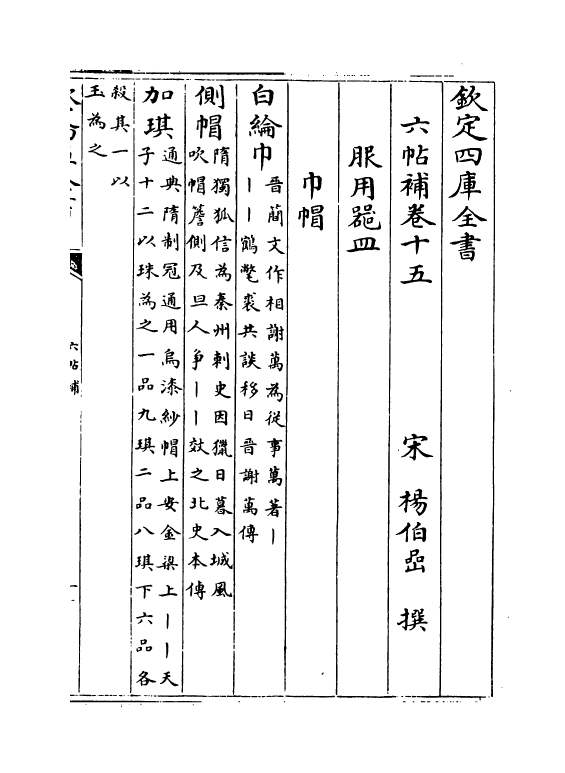 欽定四庫全書
六帖補卷十五
宋 楊伯嵒 撰
服用器皿
巾帽
白綸巾
晉簡文作相謝萬為從事萬著丨
丨丨鶴氅裘共談移日晉謝萬傳
側帽
隋獨狐信為秦州刺史因獵日暮入城風
吹帽簷側及旦人爭丨丨效之北史本傳
加琪
通典隋制冠通用烏漆紗帽上安金梁上丨丨天
子十二以珠為之一品九琪二品八琪下六品各
殺其一以
玉為之
六帖補
一